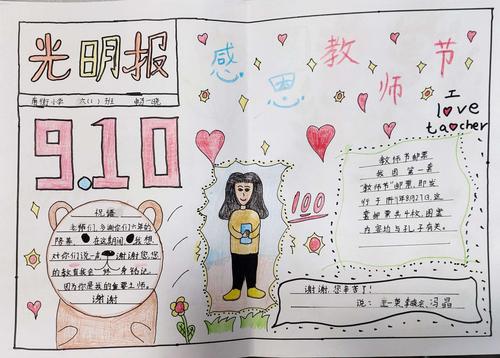 光明报
南街小学 六(1)班
感恩教师节
I
love
teacher
9.10
祝语
老师们,多谢你们六年的
陪养 在这期间 我想
对你们说一声 谢谢您,您
的教育我会终身铭记,
因为你是我的重要之师。
谢谢
100
教师节邮票
我国第一套
"教师节"邮票,即发
行于1月8月27日,这
套邮票共计2枚,图案
内容均与孔子有关。
谢谢,您辛苦了!
说:王一英,李晓会,冯晶